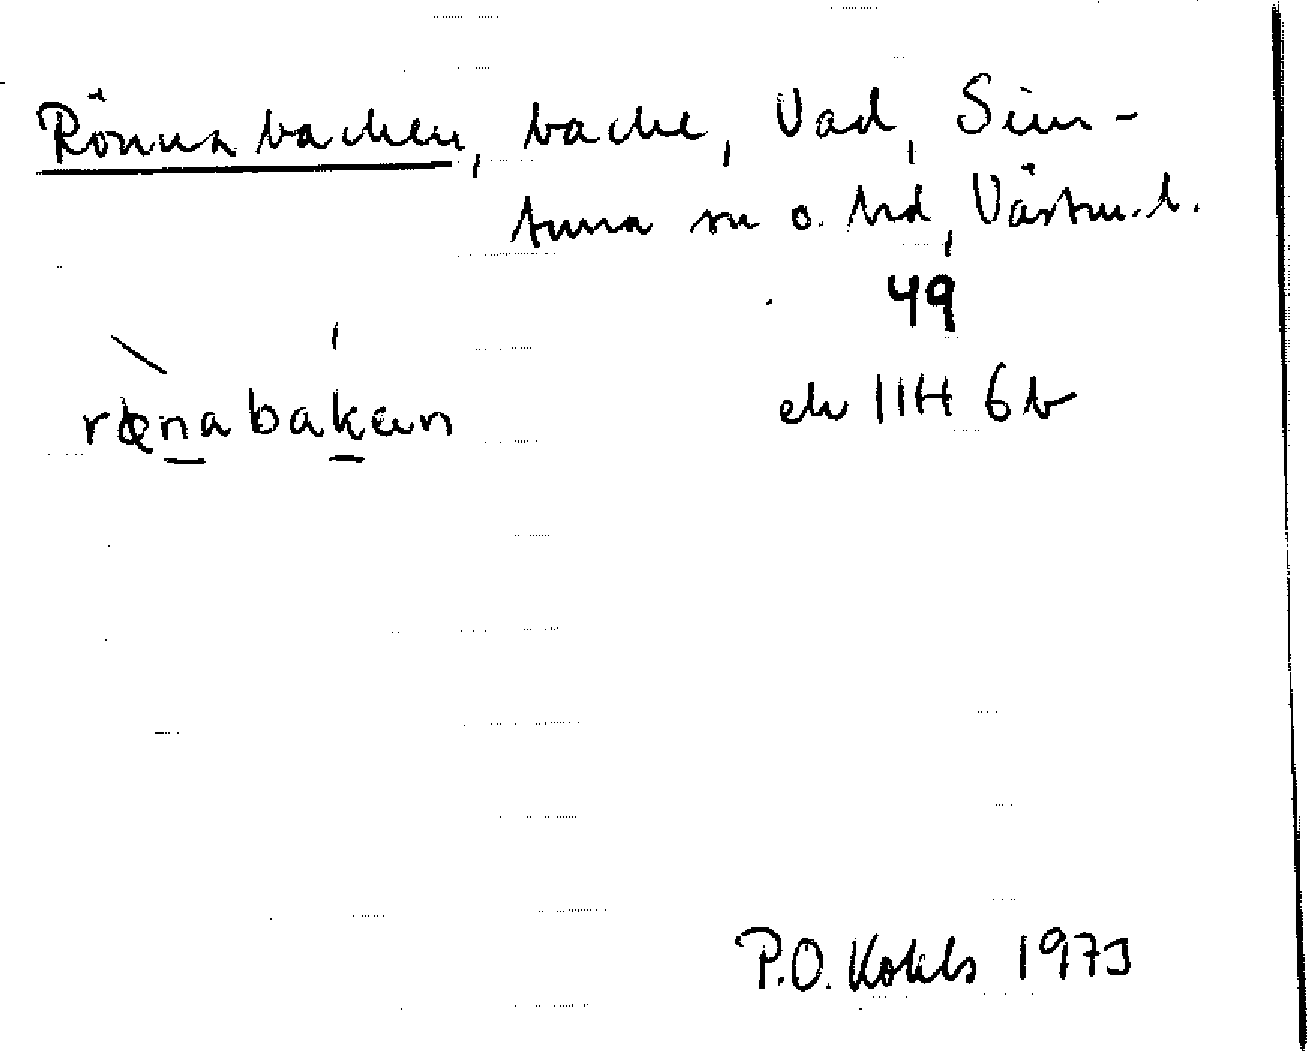 Rönnabacken, backe, Vad, Sim-
tuna sn o. hd, Västm. l.
49
rœnabakæn
ek 11H 6b
P.O. Kohls 1973